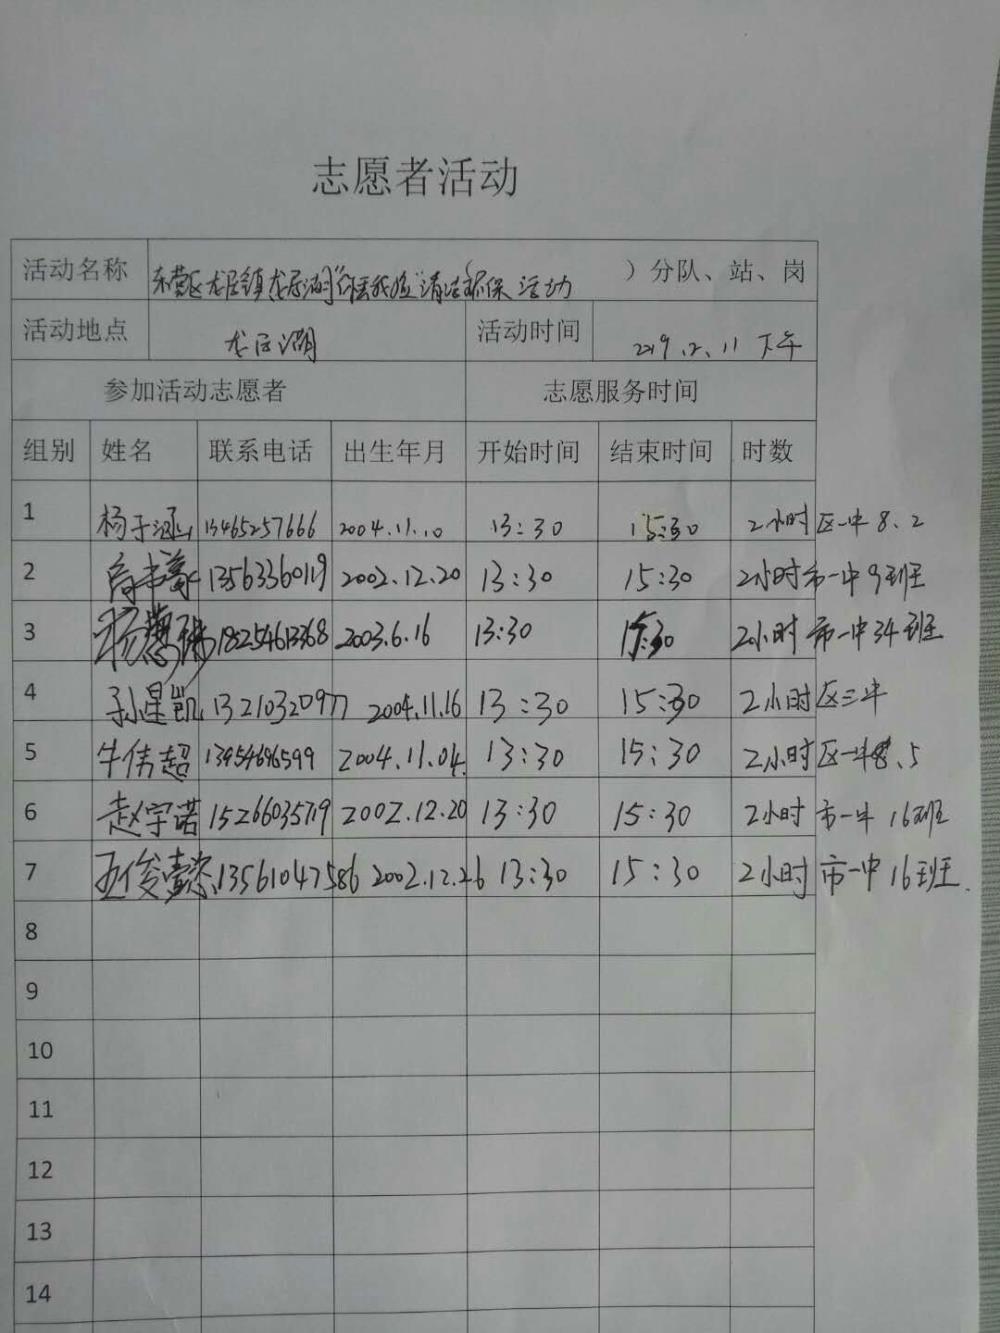 志愿者活动
活动名称 东营区龙居镇龙居湖“ 清洁环保活动 （ ）分队、站、岗
活动地点 龙居湖 活动时间 2019.2.11 下午
参加活动志愿者 志愿服务时间
组别 姓名 联系电话 出生年月 开始时间 结束时间 时数
1 杨于涵 13465257666 2004.11.10 13:30 15:30 2小时 区一中 8.2
2 13563360119 2002.12.20 13:30 15:30 2小时 市一中9班
3 杨 18254613368 2003.6.16 13:30 15:30 2小时 市一中34班
4 孙星凯 13210320977 2004.11.16 13:30 15:30 2小时 区三中
5 牛伟超 13954696599 2004.11.04 13:30 15:30 2小时 区一中8.5
6 赵宇诺 15266035719 2002.12.20 13:30 15:30 2小时 市一中 16班
7 王俊懿 13561047586 2002.12.26 13:30 15:30 2小时 市一中 16班.
8
9
10
11
12
13
14